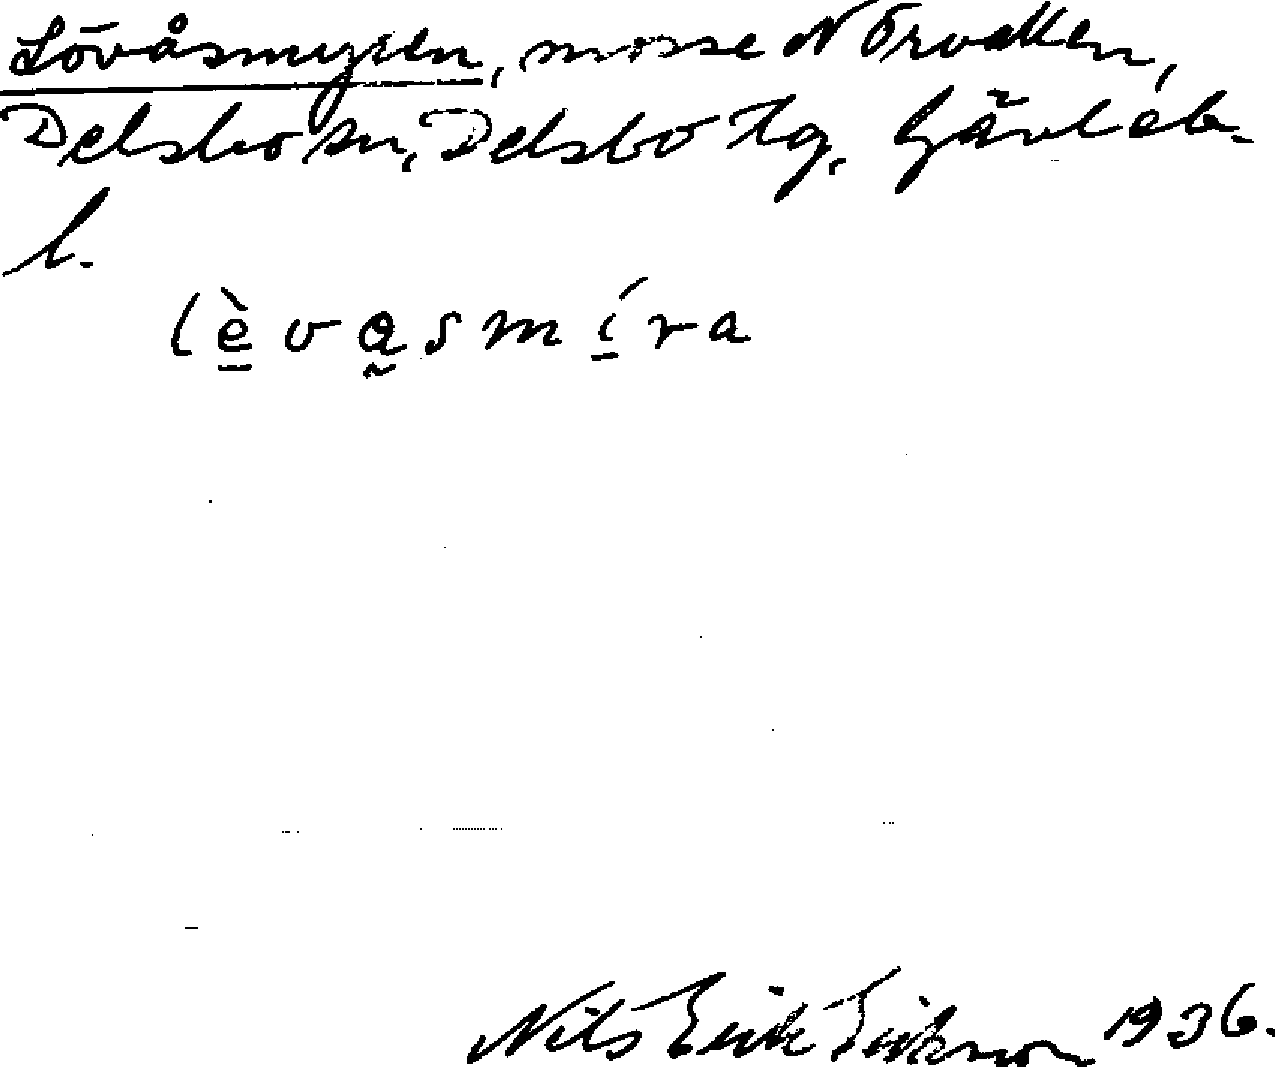 Lövåsmyren, mosse N Örvallen,
Delsbo sn, Delsbo tg, Gävleb.
l.
lèvasmíra
Nils Erik Erikson 1936.